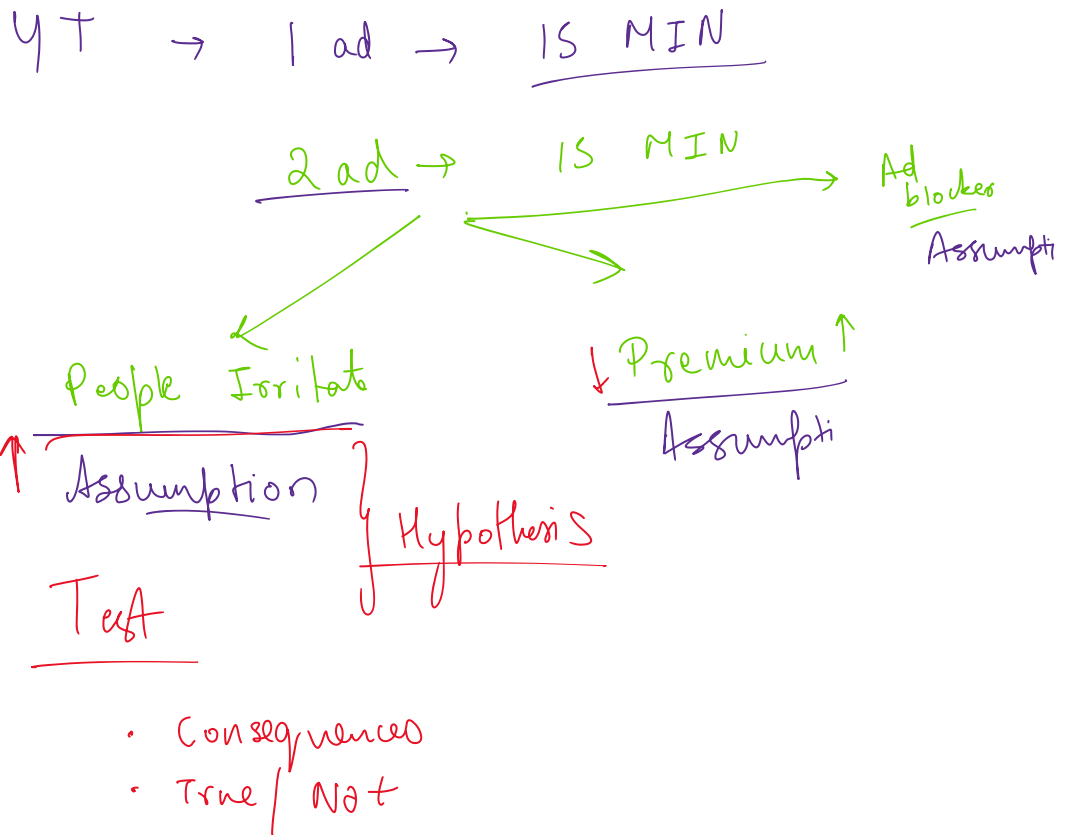 YT → 1 ad → 15 MIN
2 ad → 15 MIN
Ad
blocker
Assumpti
People Irritate
↓ Premium ↑
Assumpti
Assumption
Hypothesis
Test
• Consequences
• True / Not